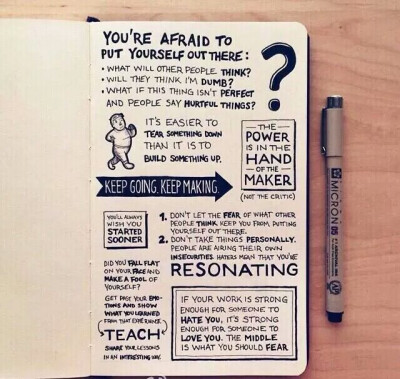 YOU'RE AFRAID TO
PUT YOURSELF OUT THERE:
• WHAT WILL OTHER PEOPLE THINK?
• WILL THEY THINK I'M DUMB?
• WHAT IF THIS THING ISN'T PERFECT
AND PEOPLE SAY HURTFUL THINGS?
?
IT'S EASIER TO
TEAR SOMETHING DOWN
THAN IT IS TO
BUILD SOMETHING UP.
THE
POWER
IS IN THE
HAND
OF THE
MAKER
(NOT THE CRITIC)
KEEP GOING. KEEP MAKING.
YOU'LL ALWAYS
WISH YOU
STARTED
SOONER
1. DON'T LET THE FEAR OF WHAT OTHER
PEOPLE THINK KEEP YOU FROM PUTTING
YOURSELF OUT THERE.
2. DON'T TAKE THINGS PERSONALLY.
PEOPLE ARE AIRING THEIR OWN
INSECURITIES. HATERS MEAN THAT YOU'RE
RESONATING
DID YOU FALL FLAT
ON YOUR FACE AND
MAKE A FOOL OF
YOURSELF?
GET PAST YOUR EMO-
TIONS AND SHOW
WHAT YOU LEARNED
FROM THAT EXPERIENCE
TEACH
SHARE YOUR LESSONS
IN AN INTERESTING WAY.
IF YOUR WORK IS STRONG
ENOUGH FOR SOMEONE TO
HATE YOU, IT'S STRONG
ENOUGH FOR SOMEONE TO
LOVE YOU. THE MIDDLE
IS WHAT YOU SHOULD FEAR
MICRON 05